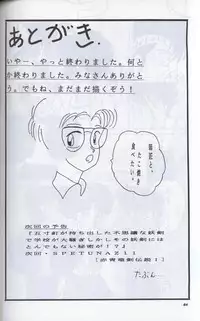 あとがき.
いやー、やっと終わりました。何と
か終わりました。みなさんありがと
う。でもね、まだまだ描くぞう！
師匠と、
たこ焼き
食べたい。
次回の予告
『五寸釘が持ち出した不思議な妖剣
で学校が大騒ぎしかしその妖剣には
とんでもない秘密が！？』
次回・SPETUNAZ11
［赤青竜剣伝説！］
たぶん